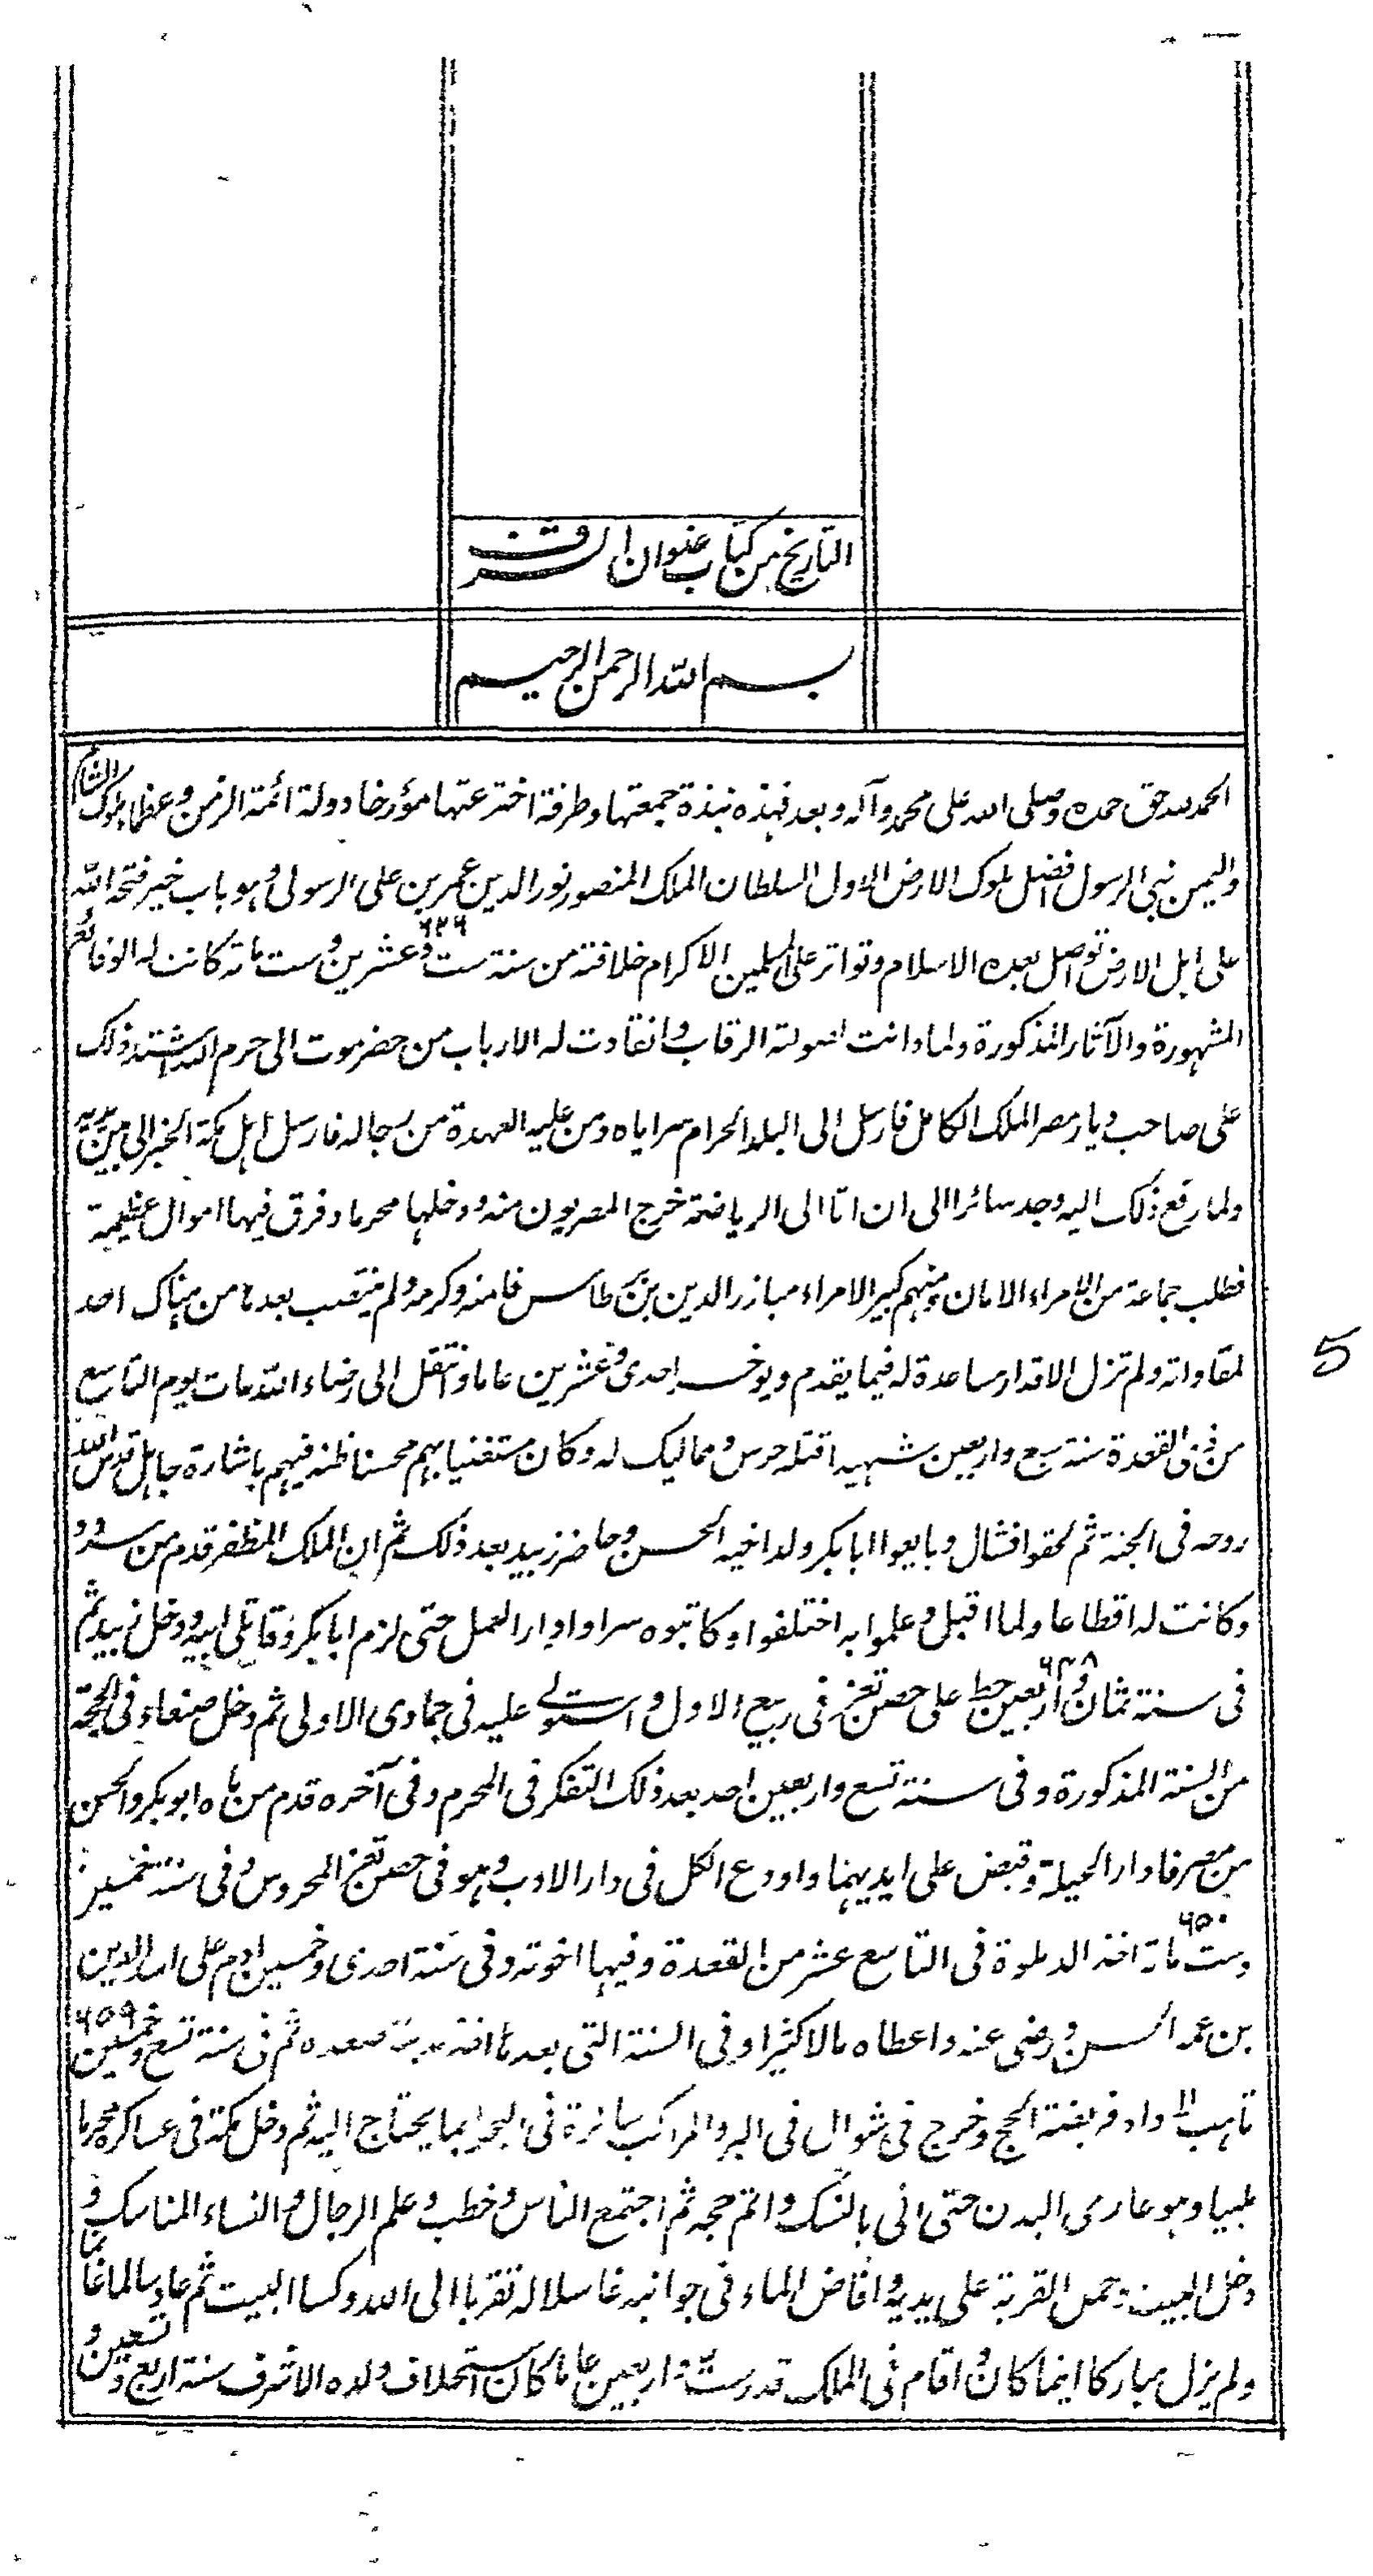 التاريخ من كتاب عنوان الشرف
بسم الله الرحمن الرحيم
الحمد لله حق حمده وصلى الله على محمد وآله وبعد فهذه نبذة جمعتها وطرفة اخترعتها مؤرخا دولة ائمة الزمن وعظماء ملوك الشام
واليمن بني الرسول افضل ملوك الارض الاول السلطان الملك المنصور نور الدين عمر بن على الرسولى وهو باب خير فتحه الله
على اهل الارض توصل بعده الاسلام وتواتر على المسلمين الاكرام خلافته من سنة ست وعشرين وست مائة كانت له الوقائع
٦٢٦
المشهورة والآثار المذكورة ولما دانت لصولته الرقاب وانقادت له الارباب من حضرموت الى حرم الله اشتد ذلك
على صاحب ديار مصر الملك الكامل فارسل الى البلد الحرام سراياه ومن عليه العهدة من رجاله فارسل اهل مكة الخبر الى
ولما رفع ذلك اليه وجد سائرا الى ان اتا الى الرياضة خرج المصريون منه ودخلها محرما وفرق فيها اموال عظيمة
فطلب جماعة من الامراء الامان ومنهم كبير الامراء مبارز الدين بن طاس فامنه وكرمه ولم ينتصب بعدها من هناك احد
لمقاواته ولم تزل الاقدار مساعدة له فيما يقدم ويوخر احدى وعشرين عاما وانتقل الى رضاء الله مات يوم التاسع
من ذى القعدة سنة سبع واربعين شهيدا قتله حرس ومماليك له وكان مستغنيا بهم محسنا ظنه فيهم باشارة جاهل قدس الله
روحه فى الجنة ثم لحقوا فشال وبايعوا ابا بكر ولد اخيه الحسن وحاصر زبيد بعد ذلك ثم ان الملك المظفر قدم من سردد
وكانت له اقطاعا ولما اقبل وعلموا به اختلفوا وكاتبوه سرا وادار العمل حتى لزم ابا بكر وقاتلى ابيه ودخل زبيد ثم
فى سنة ثمان واربعين حط على حصن تعز فى ربيع الاول واستولى عليه فى جمادى الاولى ثم دخل صنعاء فى الحجة
٦٤٨
من السنة المذكورة وفى سنة تسع واربعين احد بعد ذلك التفكر فى المحرم وفى آخره قدم من ابو بكر والحسن
من مصر فادار الحيلة وقبض على ايديهما واودع الكل فى دار الادب وهو فى حصن تعز المحروس وفى سنة خمسين
٦٥٠
وست مائة اخذ الدملوة فى التاسع عشر من القعدة وفيها اخوته وفى سنة احدى وخمسين على الدين
بن الحسن رضى عنه واعطاه مالا كثيرا وفى السنة التى بعدها اخذ مدينة صعده ثم فى سنة تسع وخمسين
٦٥٩
تاهب الى اداء فريضة الحج وخرج فى شوال فى البر والمراكب سائرة فى البحر بما يحتاج اليه ثم دخل مكة فى عساكره محرما
ملبيا وهو عارى البدن حتى اتى بالنسك واتم حجه ثم اجتمع الناس وخطب وعلم الرجال والنساء المناسك و
دخل البيت وحمل القربة على يديه وافاض الماء فى جوانبه غاسلا له تقربا الى الله وكسا البيت ثم عاد سالما غانما
ولم يزل مباركا اينما كان واقام فى الملك قدر ستة واربعين عاما كان استخلاف ولده الاشرف سنة اربع وتسعين و
5